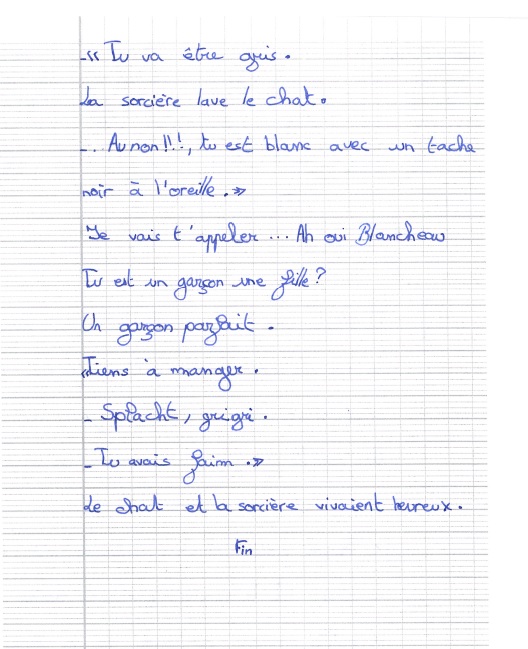 -« Tu va être gris.
La sorcière lave le chat.
-... Au non!!!, tu est blanc avec un tache
noir à l'oreille. »
Je vais t'appeler ... Ah oui Blancheau
Tu est un garçon une fille ?
Un garçon parfait.
«Tiens à manger.
- Splacht, grigri.
- Tu avais faim .»
Le chat et la sorcière vivaient heureux.
Fin